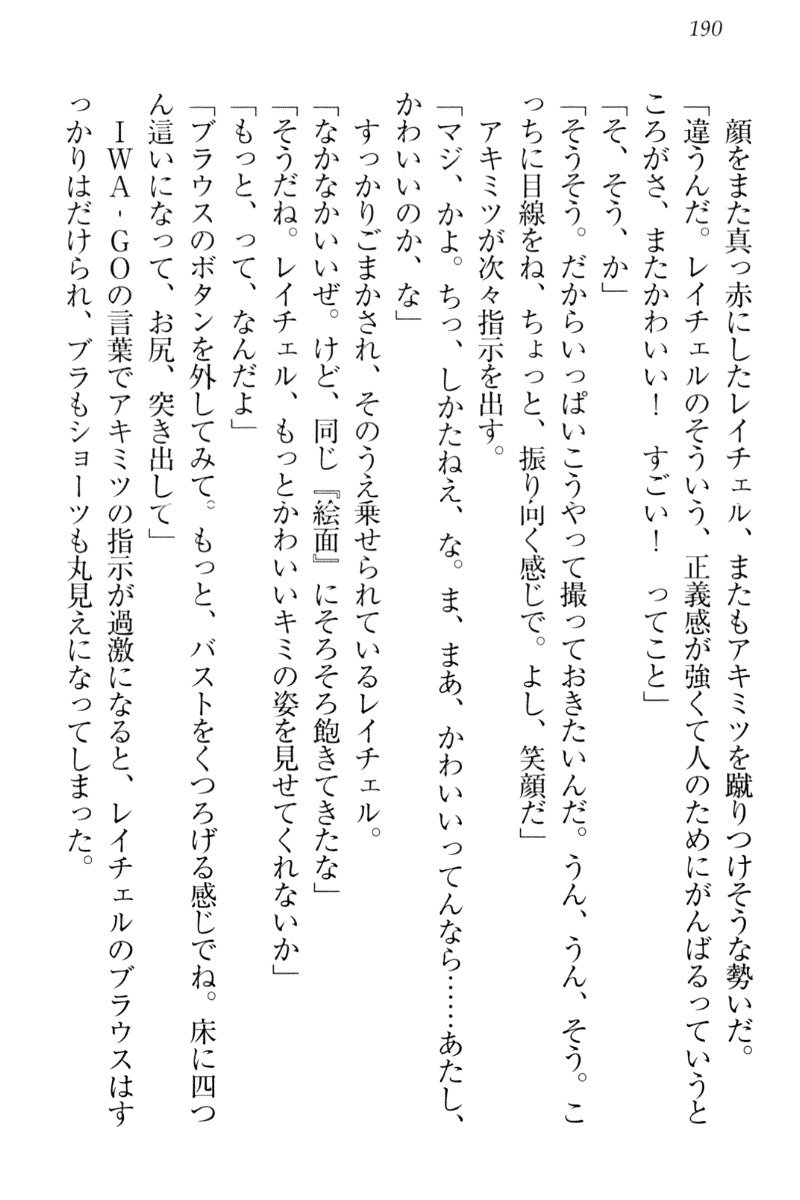 190
顔をまた真っ赤にしたレイチェル、またもアキミツを蹴りつけそうな勢いだ。
「違うんだ。レイチェルのそういう、正義感が強くて人のためにがんばるっていうと
ころがさ、またかわいい！　すごい！　ってこと」
「そ、そう、か」
「そうそう。だからいっぱいこうやって撮っておきたいんだ。うん、うん、そう。こ
っちに目線をね、ちょっと、振り向く感じで。よし、笑顔だ」
アキミツが次々指示を出す。
「マジ、かよ。ちっ、しかたねえ、な。ま、まあ、かわいいってんなら……あたし、
かわいいのか、な」
すっかりごまかされ、そのうえ乗せられているレイチェル。
「なかなかいいぜ。けど、同じ『絵面』にそろそろ飽きてきたな」
「そうだね。レイチェル、もっとかわいいキミの姿を見せてくれないか」
「もっと、って、なんだよ」
「ブラウスのボタンを外してみて。もっと、バストをくつろげる感じでね。床に四つ
ん這いになって、お尻、突き出して」
ＩＷＡ‐ＧＯの言葉でアキミツの指示が過激になると、レイチェルのブラウスはす
っかりはだけられ、ブラもショーツも丸見えになってしまった。